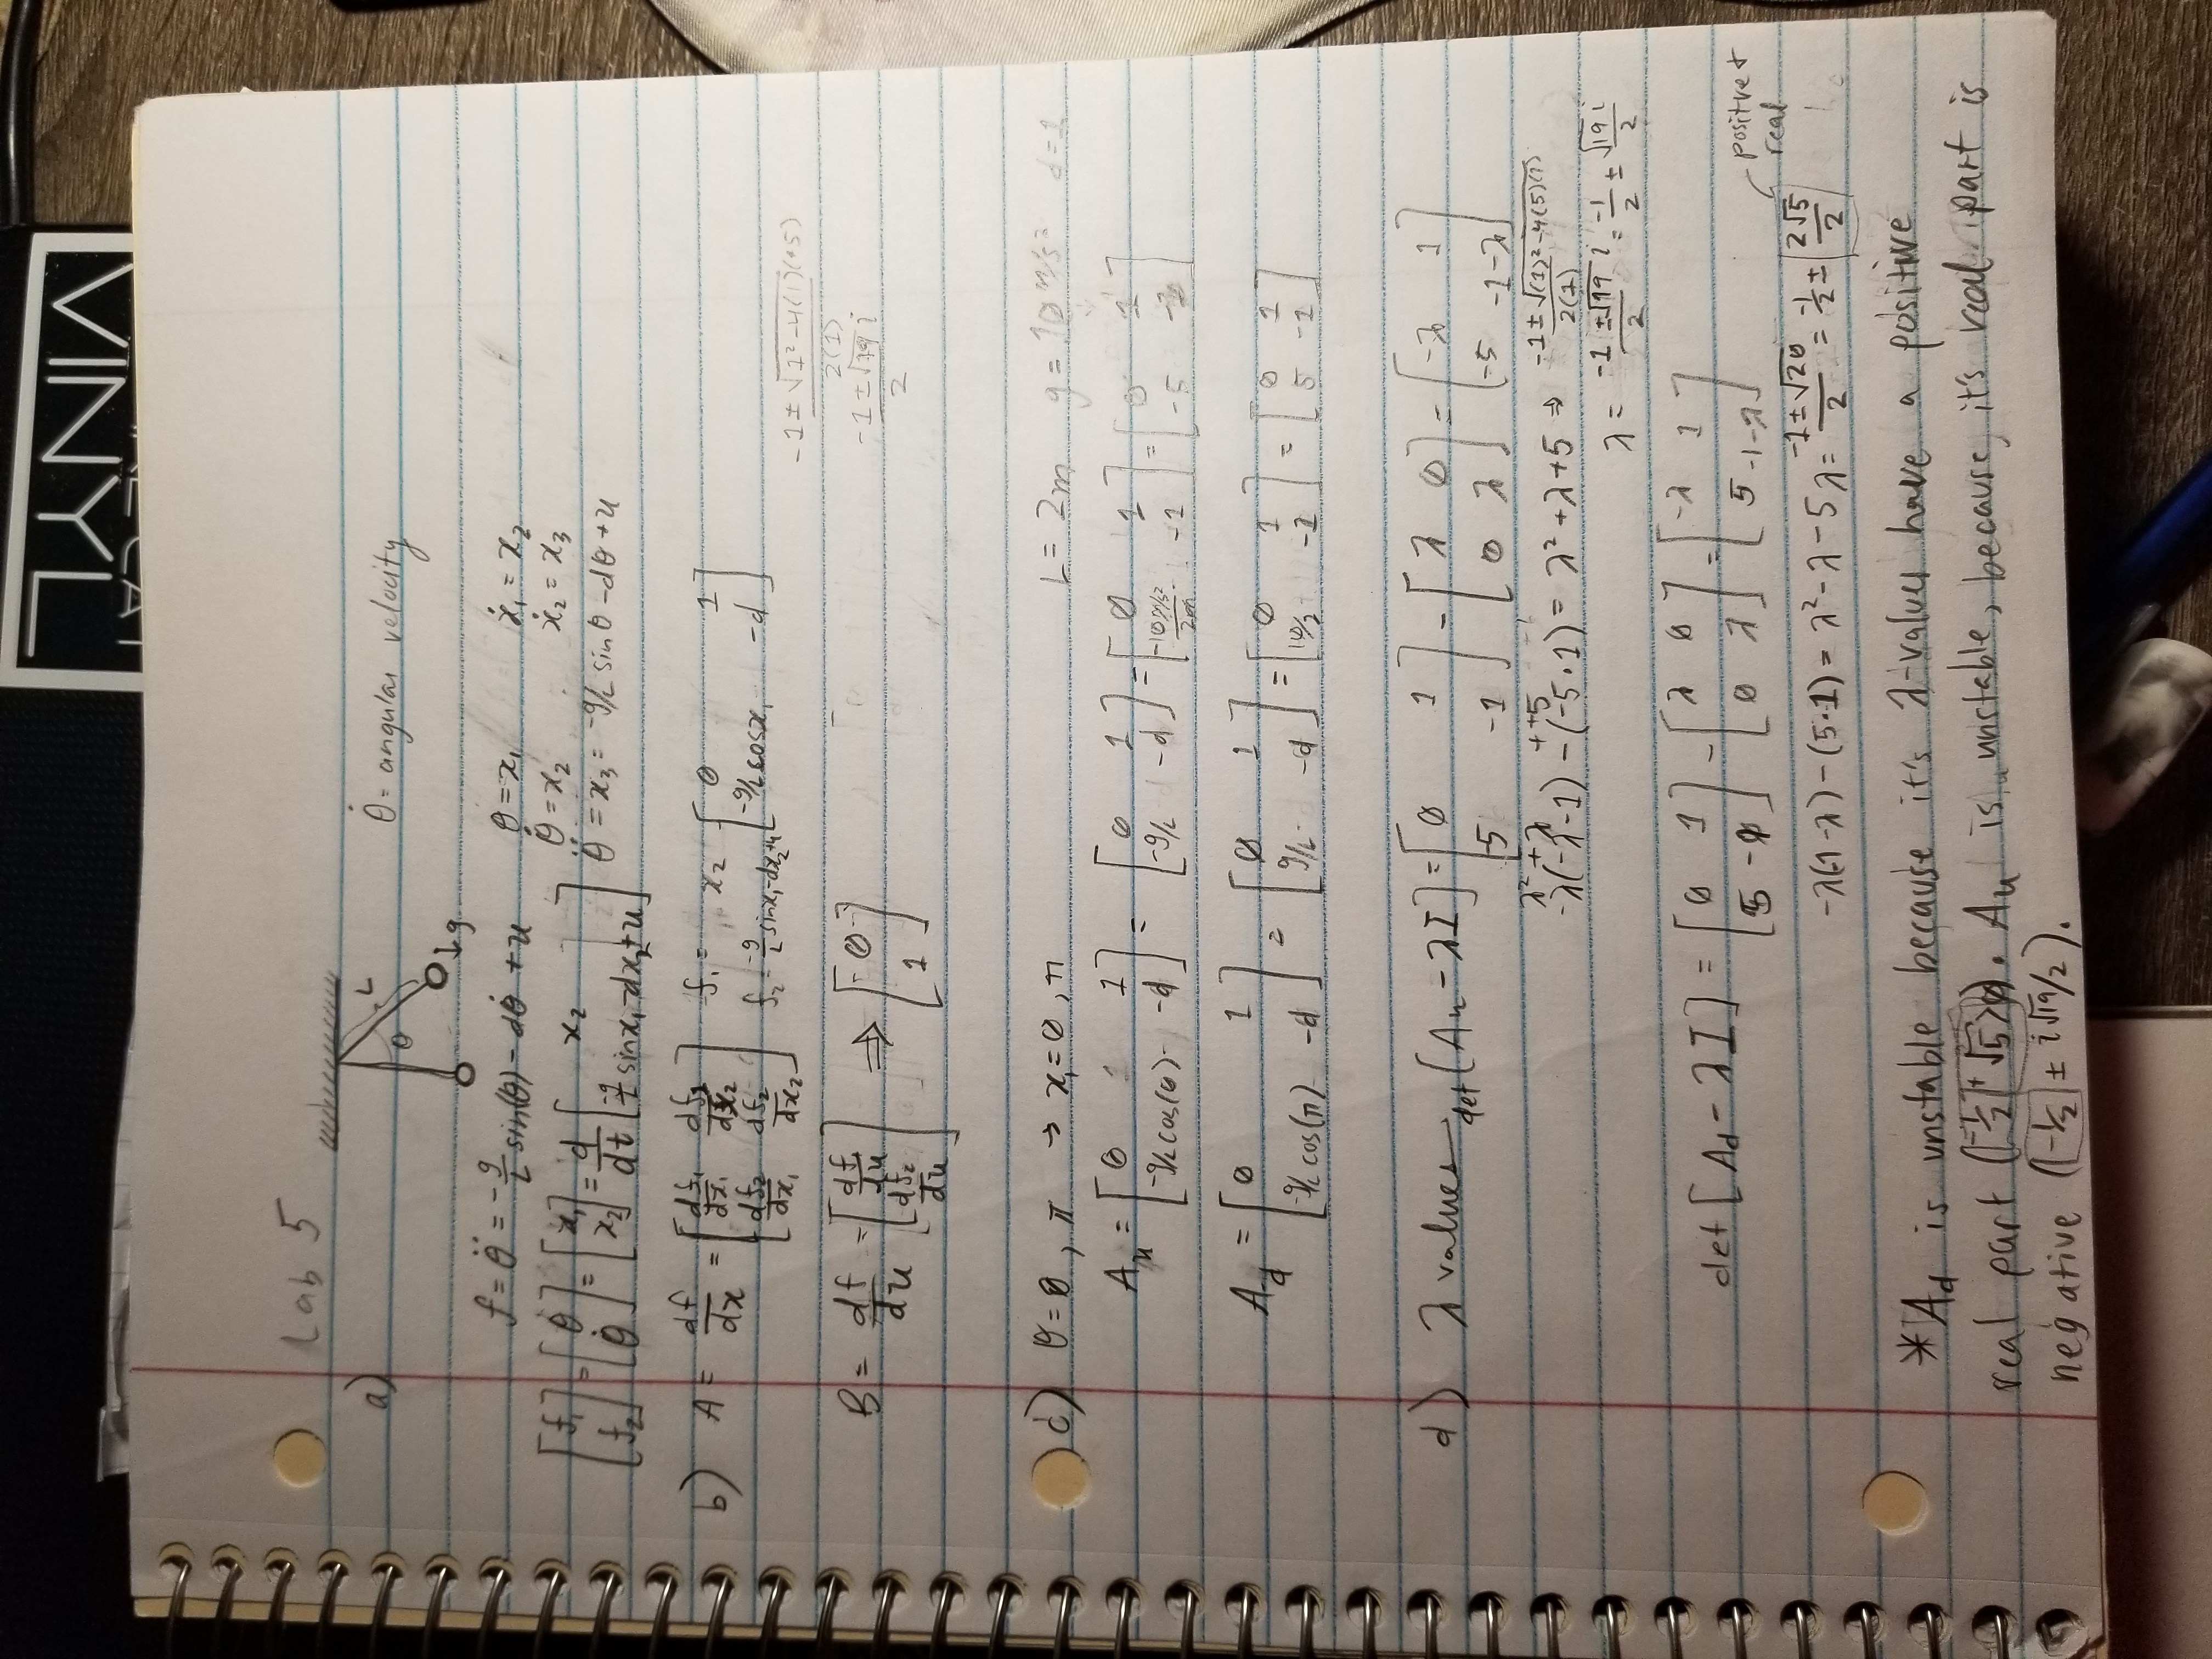 VINYL
Lab 5
a)
L
θ
g
θ̇ = angular velocity
f = θ̈ = -g/L sin(θ) - dθ̇ + u
θ = x₁ ẋ₁ = x₂
θ̇ = x₂ ẋ₂ = x₃
[f₁; f₂] = [θ; θ̇] = [x₁; x₂] = d/dt [x₂; -g/L sinx₁ - dx₂ + u] θ̈ = x₃ = -g/L sinθ - dθ + u
b) A = df/dx = [df₁/dx₁ df₁/dx₂; df₂/dx₁ df₂/dx₂] f₁ = x₂ f₂ = -g/L sinx₁ - dx₂ + u [0 1; -g/L cosx₁ -d]
-1 ± √(1² - 4(1)(+5)) / 2(1)
-1 ± √19 i / 2
B = df/du = [df₁/du; df₂/du] ⇒ [0; 1]
c) θ = 0, π → x₁ = 0, π L = 2m g = 10 m/s² d = 1
Aᵤ = [0 1; -g/L cos(0) -d] = [0 1; -g/L -d] = [0 1; -10m/s²/2m -1] = [0 1; -5 -1]
A_d = [0 1; -g/L cos(π) -d] = [0 1; g/L -d] = [0 1; 10/2 -1] = [0 1; 5 -1]
d) λ values det[Aᵤ - λI] = [0 1; -5 -1] - [λ 0; 0 λ] = [-λ 1; -5 -1-λ]
λ² + λ + +5
-λ(-λ-1) - (-5·1) = λ² + λ + 5 ⇒ -1 ± √((1)² - 4(5)(1)) / 2(1)
λ = -1 ± √19 i / 2 = -1/2 ± √19 i / 2
det[A_d - λI] = [0 1; 5 -1] - [λ 0; 0 λ] = [-λ 1; 5 -1-λ]
positive + real
-λ(-1-λ) - (5·1) = λ² - λ - 5 λ = -1 ± √20 / 2 = -1/2 ± 2√5/2
*A_d is unstable because it's λ-values have a positive
real part (-1/2 + √5 > 0). Aᵤ is unstable, because, it's real part is
negative (-1/2 ± i√19/2).